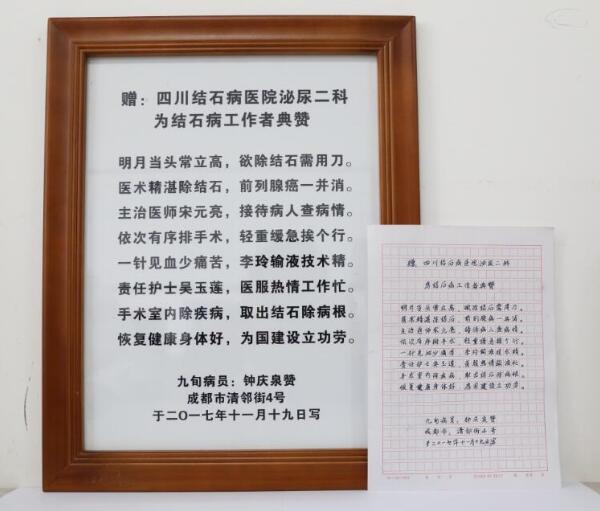 赠：四川结石病医院泌尿二科
为结石病工作者典赞
明月当头常立高，欲除结石需用刀。
医术精湛除结石，前列腺癌一并消。
主治医师宋元亮，接待病人查病情。
依次有序排手术，轻重缓急挨个行。
一针见血少痛苦，李玲输液技术精。
责任护士吴玉莲，医服热情工作忙。
手术室内除疾病，取出结石除病根。
恢复健康身体好，为国建设立功劳。
九旬病员：钟庆泉赞
成都市清邻街4号
于二〇一七年十一月十九日写
赠 四川结石病医院泌尿二科
为结石病工作者典赞
明月当头常立高，欲除结石需用刀。
医术精湛除结石，前列腺癌一并消。
主治医师宋元亮，接待病人查病情。
依次有序排手术，轻重缓急挨个行。
一针见血少痛苦，李玲输液技术精
责任护士吴玉莲，医服热情工作忙。
手术室内除疾病，取出结石除病根。
恢复健康身体好，为国建设立功劳。
九旬病员：钟庆泉赞
成都市，清邻街4号
于二〇一七年十一月十九日写